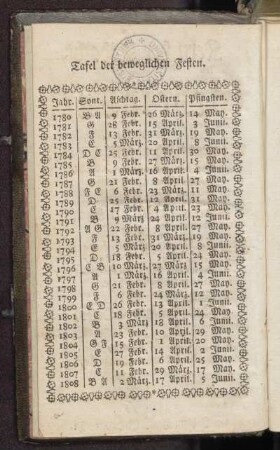 Tafel der beweglichen Festen.
Jahr. Sont. Aschtag. Ostern. Pfingsten.
1780 B A 9 Febr. 26 März. 14 May.
1781 G 28 Febr. 15 April. 3 Junii.
1782 F 13 Febr. 31 März. 19 May.
1783 E 5 März. 20 April. 8 Junii.
1784 D C 25 Febr. 11 April. 30 May.
1785 B 9 Febr. 27 März. 15 May.
1786 A 1 März. 16 April. 4 Junii.
1787 G 21 Febr. 8 April. 27 May.
1788 F E 6 Febr. 23 März. 11 May.
1789 D 25 Febr. 12 April. 31 May.
1790 C 17 Febr. 4 April. 23 May.
1791 B 9 März. 24 April. 12 Junii.
1792 A G 22 Febr. 8 April. 27 May.
1793 F 13 Febr. 31 März. 19 May.
1794 E 5 März. 20 April. 8 Junii.
1795 D 18 Febr. 5 April. 24 May.
1796 C B 10 27 März. 15 May.
1797 A 1 März. 16 April. 4 Junii.
1798 G 21 Febr. 8 April. 27 May.
1799 F 6 Febr. 24 März. 12 May.
1800 E D 26 Febr. 13 April. 1 Junii.
1801 C 18 Febr. 5 April. 24 May.
1802 B 3 März. 18 April. 6 Junii.
1803 A 23 Febr. 10 April. 29 May.
1804 G F 15 Febr. 1 April. 20 May.
1805 E 27 Febr. 14 April. 2 Junii.
1806 D 19 Febr. 6 April. 25 May.
1807 C 11 Febr. 29 März. 17 May.
1808 B A 2 März. 17 April. 5 Junii.